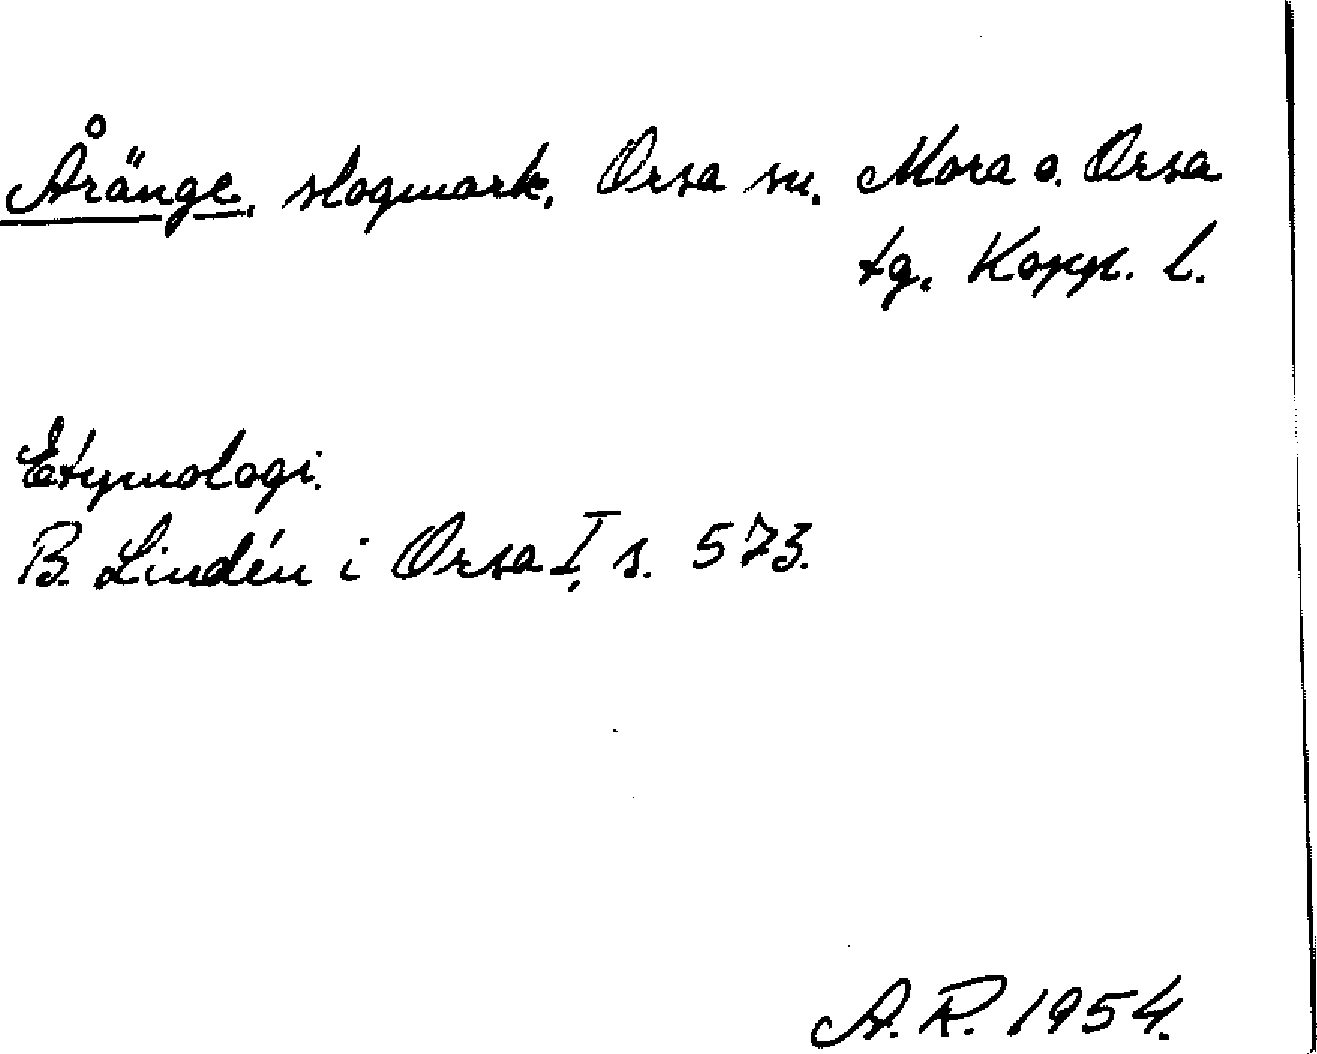 Åränge, slogmark, Orsa sn. Mora o. Orsa
tg, Kopp. l.
Etymologi.
B. Lindén i Orsa I, s. 573.
A. R. 1954.